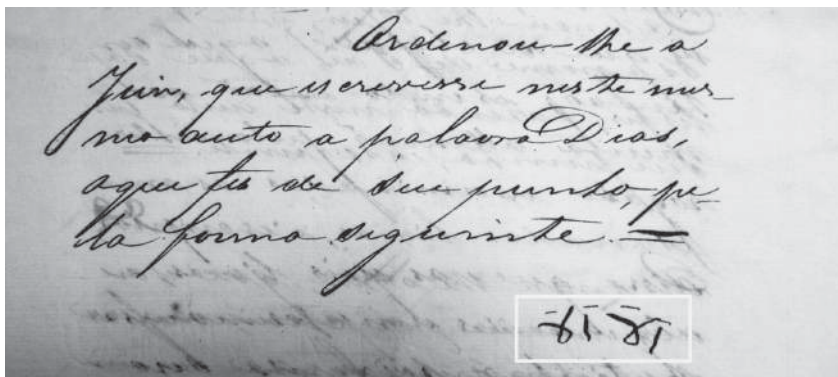 Ordenou-lhe o
Juiz, que escrevesse neste mes-
mo auto a palavra Dias,
o que fez de seu punho, pe-
la forma seguinte. —